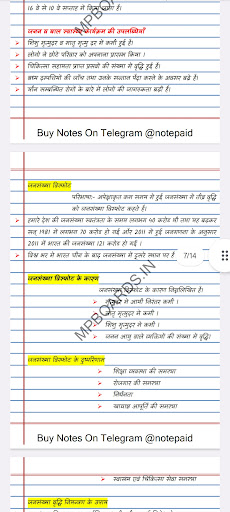 16 वे से 10 वे सप्ताह में किया जाता है।
जनन व बाल स्वास्थ्य कार्यक्रम की उपलब्धियाँ
शिशु मृत्यु दर व मातृ मृत्यु दर में कमी हुई है।
लोगो ने छोटे परिवार को अपनाना प्रारम्भ किया।
चिकित्सा सहायता प्राप्त प्रसवो की संख्या में वृद्धि हुई है।
बांझ दम्पत्तियों की जाँच तथा उनके सन्तान पैदा करने के अवसर बढ़े है।
यौन सम्बन्धित रोगो के बारे में लोगो की जागरूकता बढ़ी है।
Buy Notes On Telegram @notepaid
जनसंख्या विस्फोट
परिभाषा:- अपेक्षाकृत कम समय में हुई जनसंख्या में तीव्र वृद्धि
को जनसंख्या विस्फोट कहते है।
हमारे देश की जनसंख्या स्वतंत्रता के समय लगभग 40 करोड थी तथा यह बढ़कर
सन् 1981 में लगभग 70 करोड हो गई और 2011 में हुई जनगणना के अनुसार
2011 में भारत की जनसंख्या 121 करोड हो गई।
विश्व भर में भारत चीन के बाद जनसंख्या में दूसरे स्थान पर है
7/14
जनसंख्या विस्फोट के कारण
जनसंख्या विस्फोट के कारण निम्नलिखित है।
मृत्युदर में आयी निरंतर कमी।
मातृ मृत्युदर में कमी।
शिशु मृत्युदर में कमी।
जनन आयु वाले व्यक्तियों की संख्या में वृद्धि।
जनसंख्या विस्फोट के दुष्परिणाम
शिक्षा व्यवस्था की समस्या
रोजगार की समस्या
निर्धनता
खाद्यान्न आपूर्ति की समस्या
MPBOARDS.IN
Buy Notes On Telegram @notepaid
स्वास्थ्य एवं चिकित्सा सेवा समस्या
जनसंख्या वृद्धि नियन्त्रण के उपाय